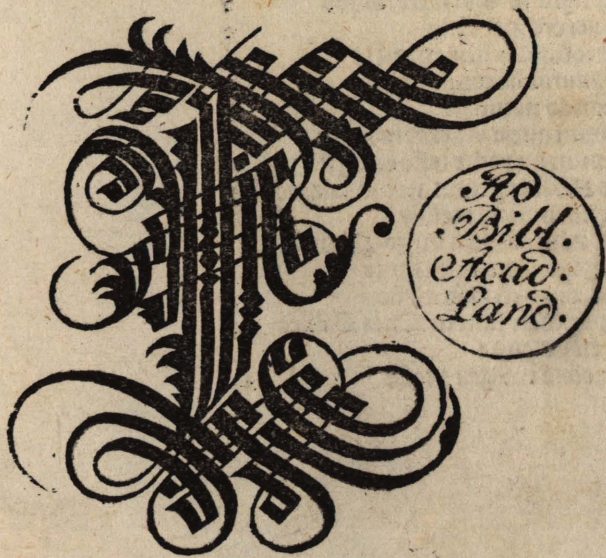 F
Ad
Bibl.
Acad.
Land.